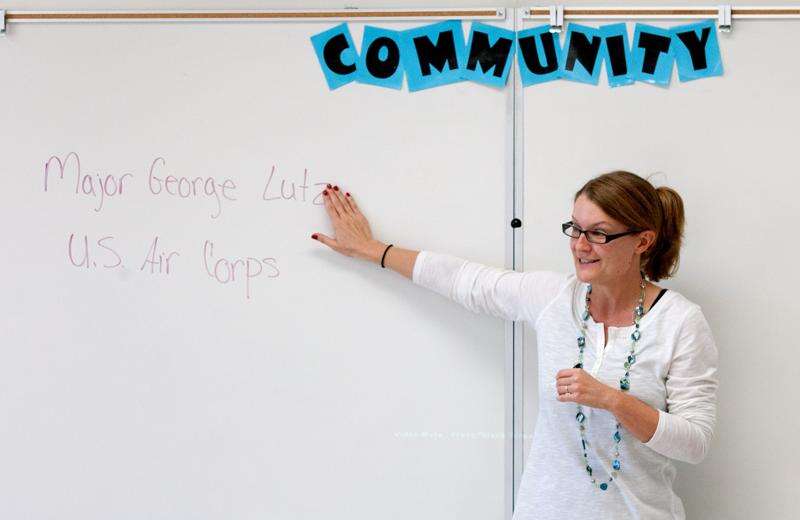 COMMUNITY
Major George Lutz
U.S. Air Corps